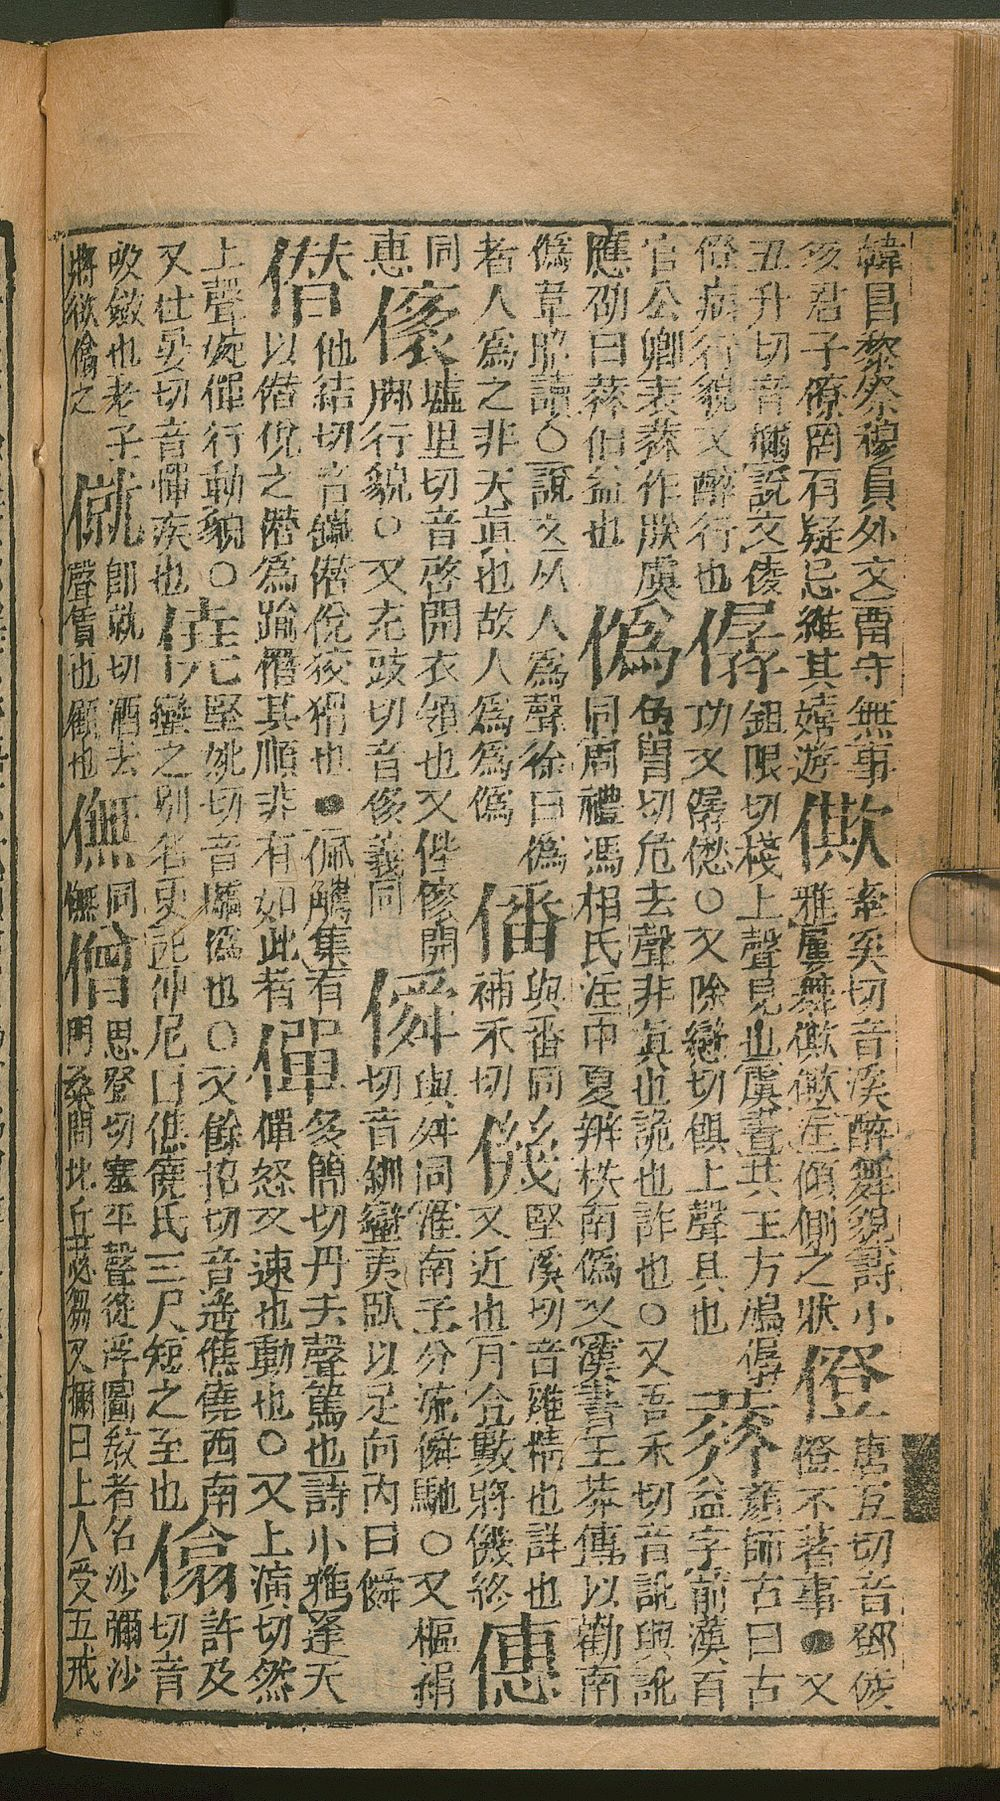 韓昌黎祭穆員外文酉守無事
亥君子僚罔有疑忌維其嬉遊
僛
牽奚切音溪醉舞貌詩小
雅屢舞僛僛注傾側之狀
僜
唐亙切音鄧倰
僜不著事●又
丑升切音稱說文倰
僜病行貌又醉行也
僝
鉏限切棧上聲見也虞書共工方鳩僝
功又僝僽○又除戀切俱上聲具也
顏師古曰古
益字前漢百
官公卿表作朕虞
應劭曰伯益也
僞
危胃切危去聲非真也詭也詐也○又吾禾切音訛與訛
同周禮馮相氏注中夏辨秩南僞又漢書王莽傳以勸南
僞韋昭讀○說文从人為聲徐曰僞
者人為之非天真也故人為為僞
僠
與番同
補禾切
僟
堅溪切音雞精也詳也
又近也月令數將僟終
僡
同
惠
墟里切音啓開衣領也又開
脚行貌○又充豉切音侈義同
僢
與舛同淮南子分流僢馳○又樞絹
切音釧蠻夷臥以足向內曰僢
僣
他結切音鐵僣侻狡猾也●佩觿集有
以僣侻之僣為踰僭其順非有如此者
僤
多簡切丹去聲篤也詩小雅逢天
僤怒又速也動也○又上演切然
上聲宛僤行動貌○
又杜晏切音憚疾也
僥
堅姚切音驕僞也○又餘招切音堯僬僥西南
蠻之別名史記仲尼曰僬僥氏三尺短之至也
㒆
許及
切音
吸斂也老子
將欲㒆之
僦
卽就切酒去
聲賃也顧也
㒇
同
憮
僧
思登切塞平聲從浮圖敎者名沙彌沙
門又間比丘苾芻又獮曰上人受五戒